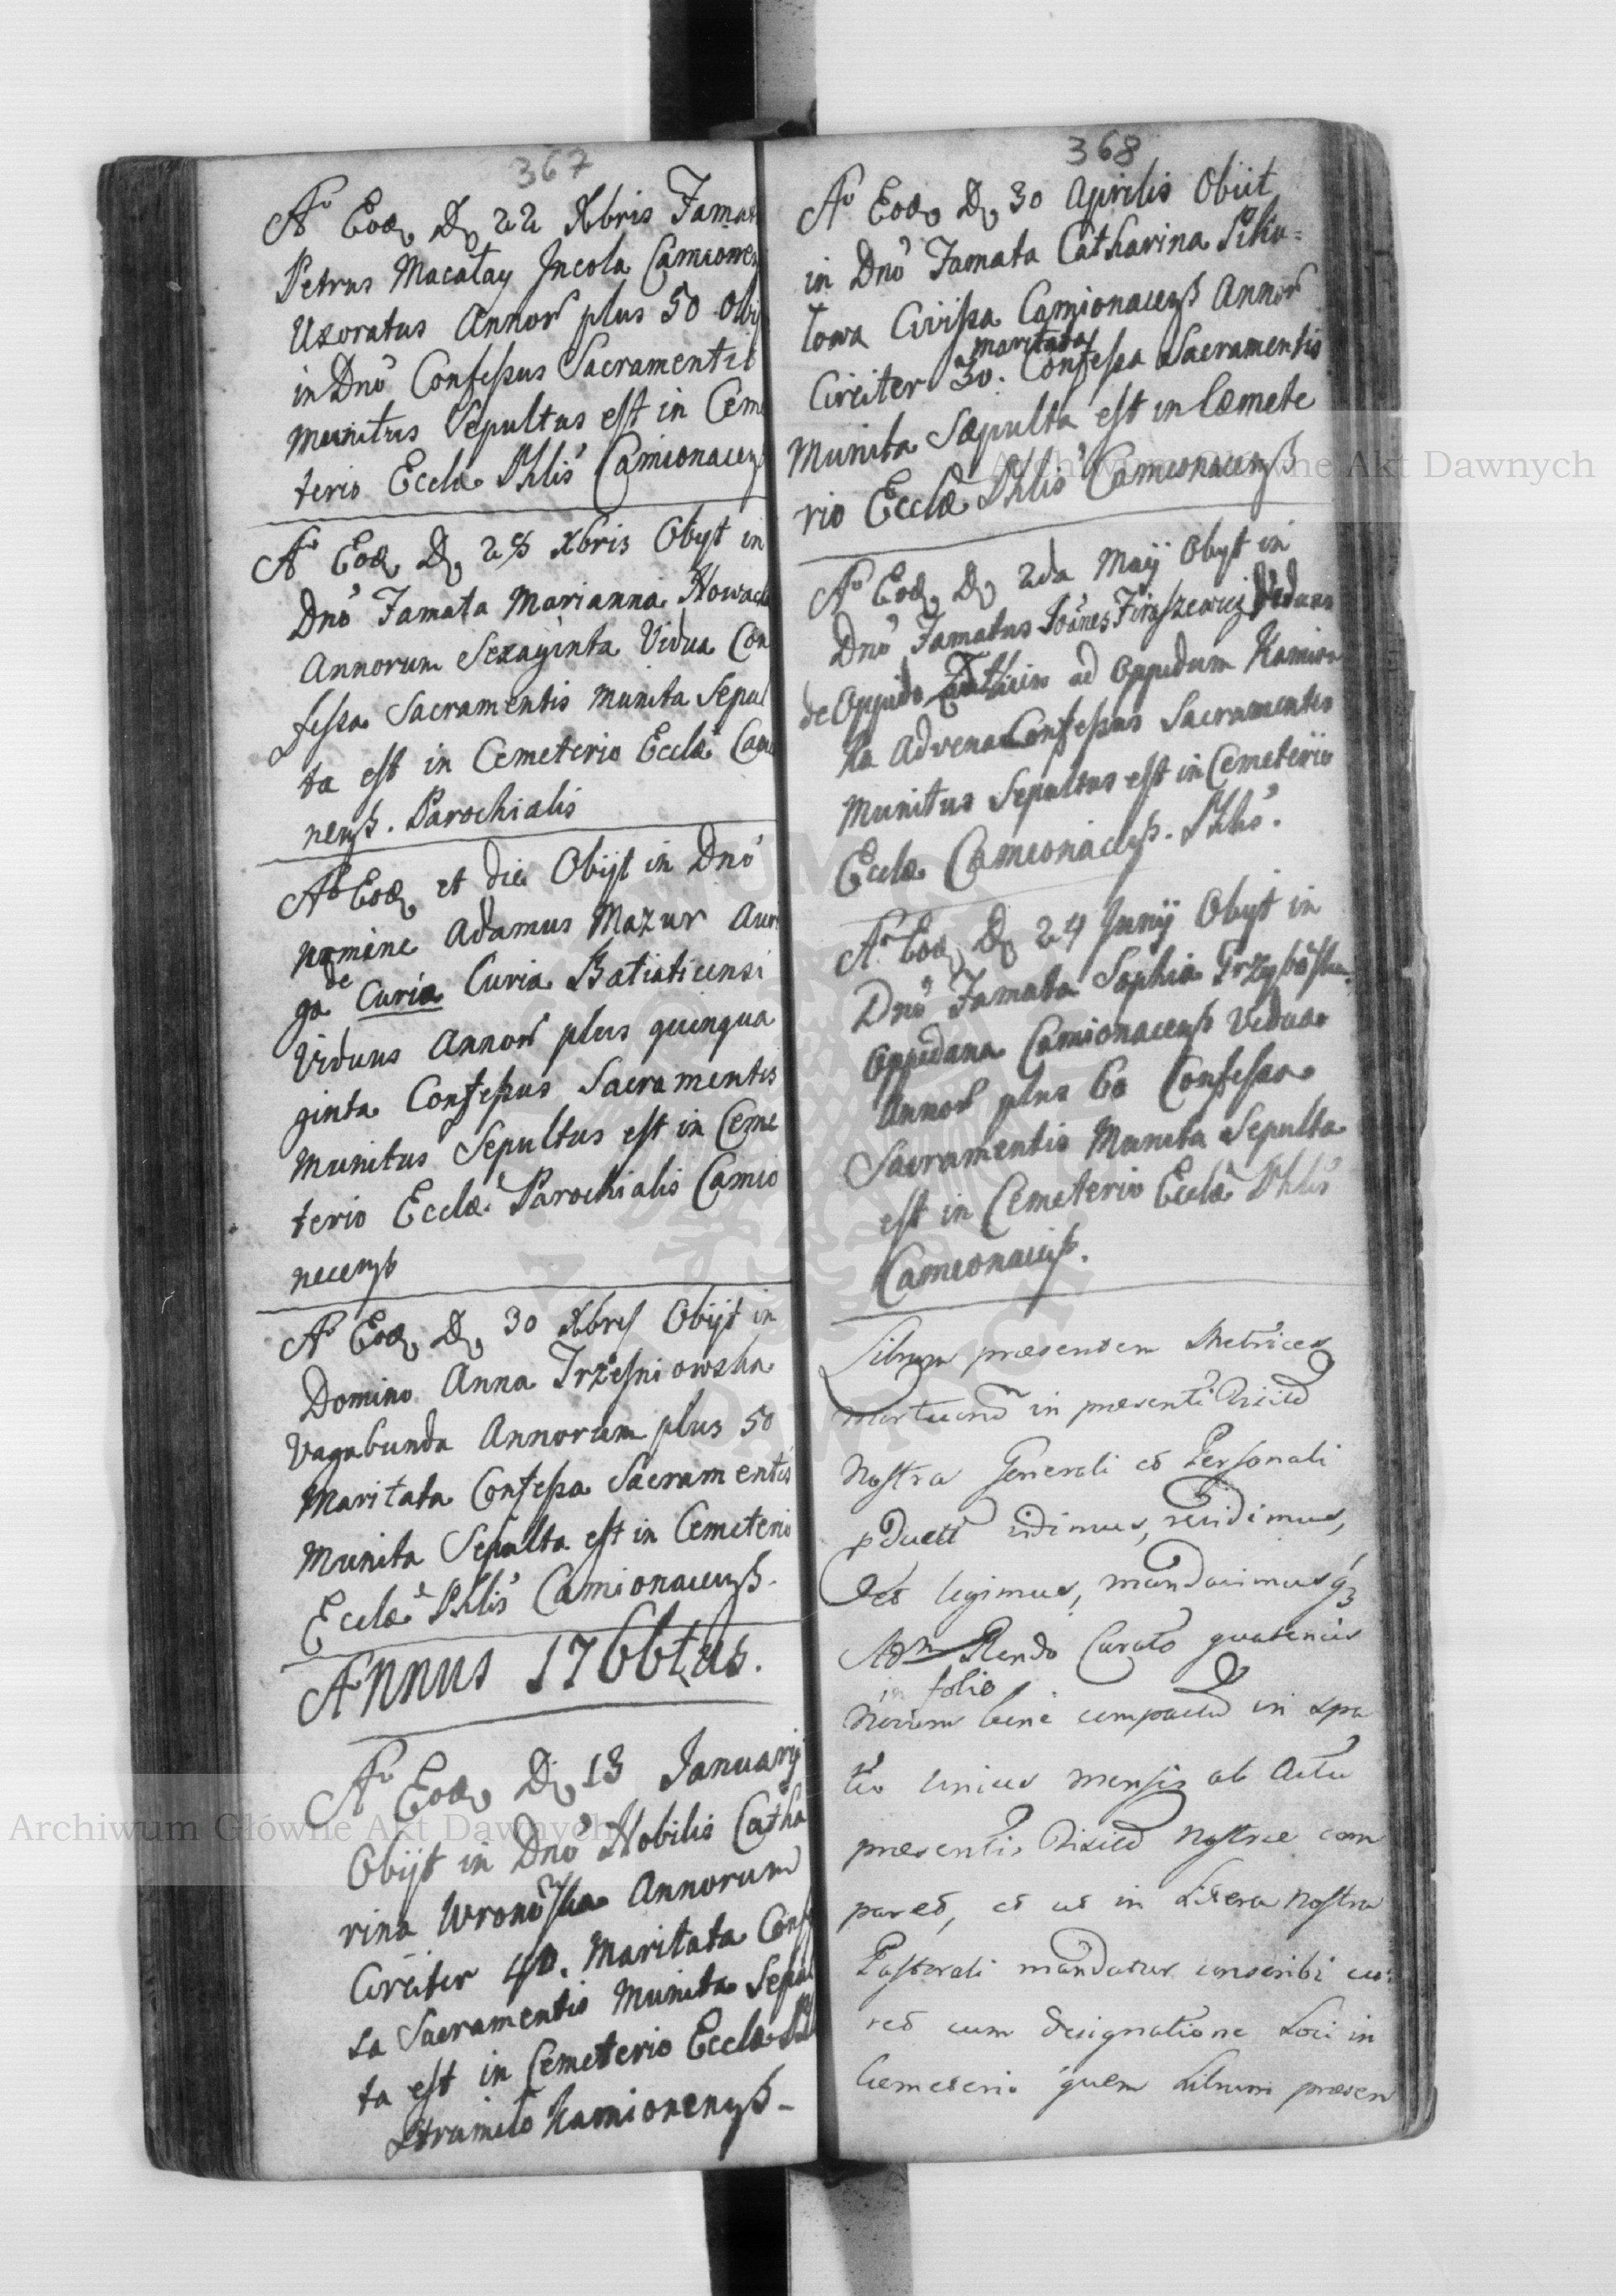 367
Aº Eod. D. 22 Xbris Famat
Petrus Macałay Incola Camionen
Uxoratus Annor plus 50 Obij
in Dnó Confessus Sacramentis
Munitus Sepultus est in Ceme
terio Eccla Phlis Camionacens
Aº Eod. D. 28 Xbris Obyt in
Dnó Famata Marianna Nowack
Annorum Sexaginta Vidua Con
fessa Sacramentis Munita Sepul
ta est in Cemeterio Eccla Cam
nens. Parochialis
Aº Eod et die Obijt in Dnó
nomine Adamus Mazur Auri
ga de Curia Curia Batiaticensi
Viduus Annor plus quinqua
ginta Confessus Sacramentis
Munitus Sepultus est in Ceme
terio Ecclæ Parochialis Camio
necens
Aº Eod. D. 30 Xbris Obijt in
Domino Anna Trzesniowska
Vagabunda Annorum plus 50
Maritata Confessa Sacramentis
Munita Sepulta est in Cemeterio
Ecclæ Phlis Camionacens.
Annus 1766tus.
Aº Eod. D. 13 Januarij
Obijt in Dnó Nobilis Catha
rina Wronoska Annorum
Circiter 40. Maritata Conf
sa Sacramentis Munita Sepul
ta est in Cemeterio Ecclæ
Strumilo Kamionens.
368
Aº Eod. D. 30 Aprilis Obiit
in Dnó Famata Catharina
towa Civissa Camionacens Annor
Circiter 30. maritata Confessa Sacramentis
Munita Sæpulta est in Cœmete
rio Ecclæ Phlis Camionacens
Aº Eod. D. 2da Maij Obyt in
Dnó Famatus Joãnes Viduus
de Oppido ad Oppidum Kamion
ka Advena Confessus Sacramentis
Munitus Sepultus est in Cemeterio
Ecclæ Camionacens. Phlis.
Aº Eod. D. 24 Junij Obyt in
Dnó Famata Sophia
Oppidana Camionacens Vidua
Annor plus 60 Confessa
Sacramentis Munita Sepulta
est in Cemeterio Ecclæ Phlis
Camionacens.
Librum præsentem Metrices
Mortuorũ in præsenti Visitõ
Nostra Generali et Personali
pductũ vidimus, revidimus,
et legimus, mandavimusq3
Adm Rendo Curato quatenus
in folio
Novum bene compactũ in spa
tio unius mensis ab Actu
præsentis Visitõ Nostræ com
paret, et ut in Litera Nostra
Pastorali mandatur conscribi cu
ret cum designatione Loci in
Cemeterio quem Librum præsen
Archiwum Główne Akt Dawnych
Archiwum Główne Akt Dawnych